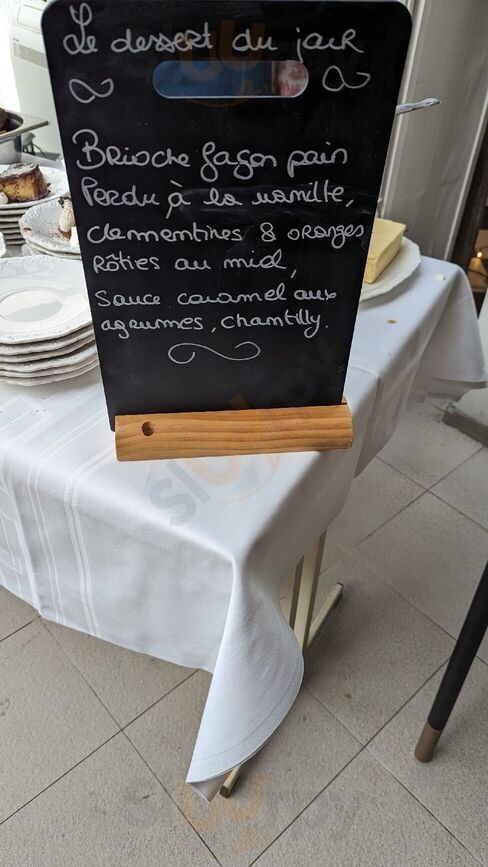 Le dessert du jack
Brioche façon pain
Perdu à la vanille,
clementines & oranges
Rôties au miel,
sauce caramel aux
agrumes, chantilly.